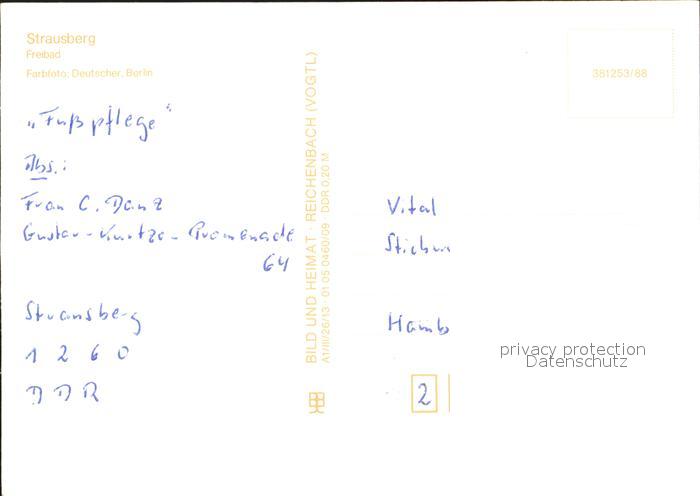 Strausberg
Freibad
Farbfoto: Deutscher, Berlin
381253/88
„Fußpflege“
Abs.:
Frau C. Danz
Gustav-Kurtze-Promenade
64
Strausberg
1 2 6 0
D D R
BILD UND HEIMAT · REICHENBACH (VOGTL)
A1/III/26/13 · 01 05 0460/09 DDR 0,20 M
Vital
Hamb
privacy protection
Datenschutz
2